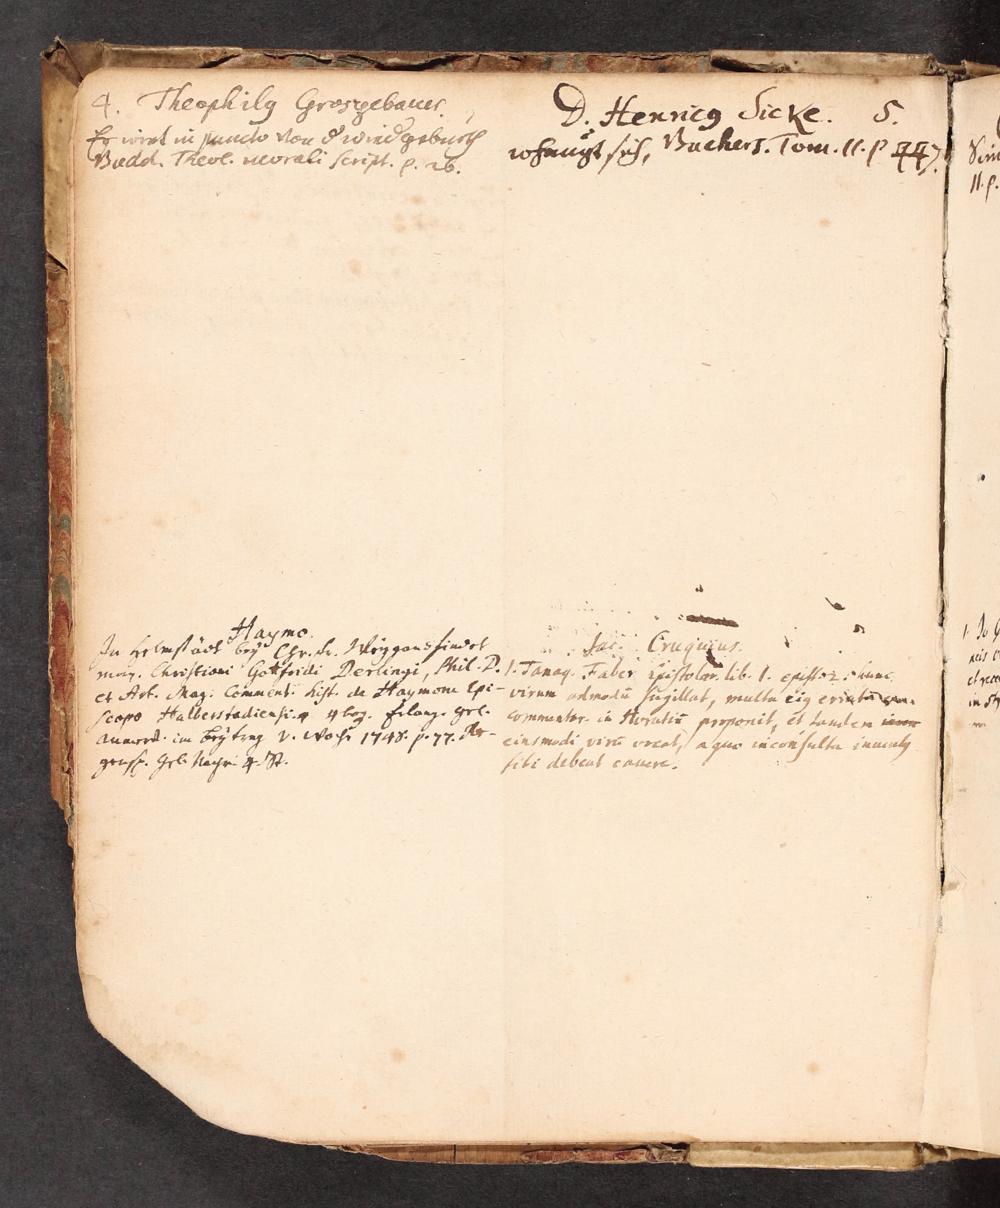 4. Theophilg Grosgebauer.
Er wird in puncto von d wiedgeburth
Budd. Theol. morali script. p. 26.
D. Henricg Sicke. S.
erhengt sich, Buchers. Tom. II. p 447.
Haymo.
In Helmstädt bey Chr. Fr. Weygand findet
man, Christiani Gottfridi Derlingi, Phil. D.
et Art. Mag. Comment. hist. de Haymone Epi-
scopo Halberstadiensi. 4 4 bog. Erlang. gel.
Anmerk. im Beytrag V. Woche 1748. p. 77.
gensp. Gel. Nachr. 4. St.
Jac. Cruquius.
1. Tanaq. Faber epistolar. lib. 1. epist. 2. hunc
virum admodū sugillat, multa eig errata
commentar. in Horatiū proponit, et tandem
eiusmodi virū vocat, a quo inconsulta iuventg
sibi debeat cavere.